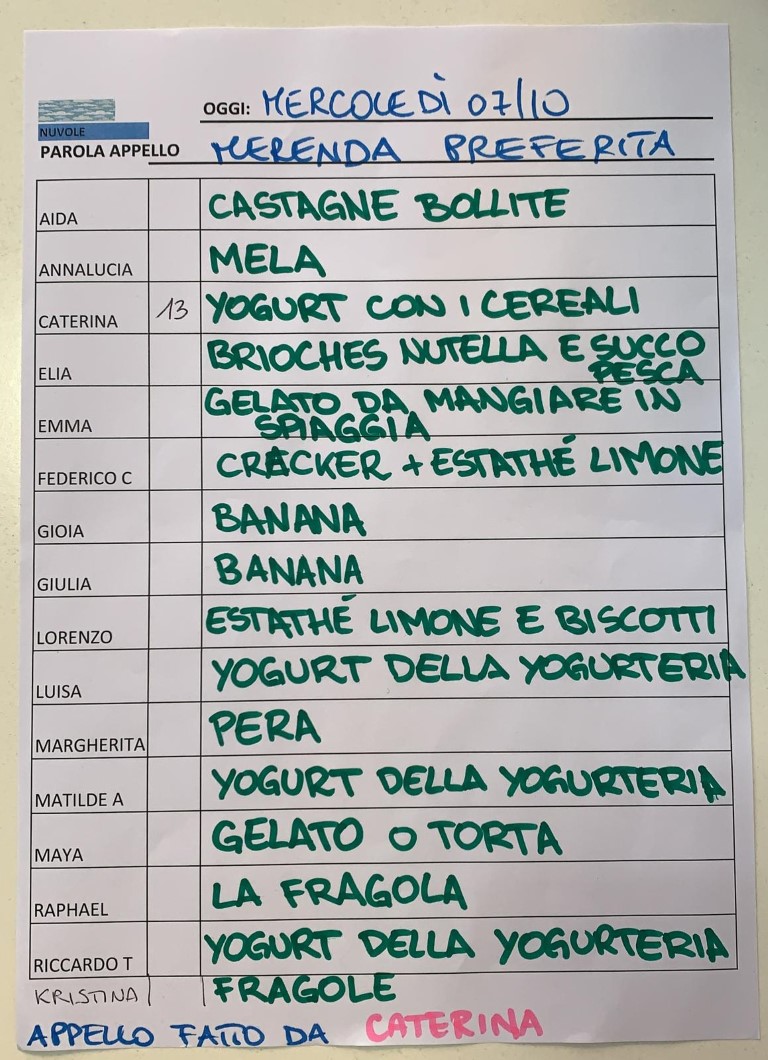 OGGI: MERCOLEDÌ 07/10
NUVOLE
PAROLA APPELLO MERENDA PREFERITA
AIDA CASTAGNE BOLLITE
ANNALUCIA MELA
CATERINA 13 YOGURT CON I CEREALI
ELIA BRIOCHES NUTELLA E SUCCO
PESCA
EMMA GELATO DA MANGIARE IN
SPIAGGIA
FEDERICO C CRACKER + ESTATHÉ LIMONE
GIOIA BANANA
GIULIA BANANA
LORENZO ESTATHÉ LIMONE E BISCOTTI
LUISA YOGURT DELLA YOGURTERIA
MARGHERITA PERA
MATILDE A YOGURT DELLA YOGURTERIA
MAYA GELATO O TORTA
RAPHAEL LA FRAGOLA
RICCARDO T YOGURT DELLA YOGURTERIA
KRISTINA FRAGOLE
APPELLO FATTO DA CATERINA